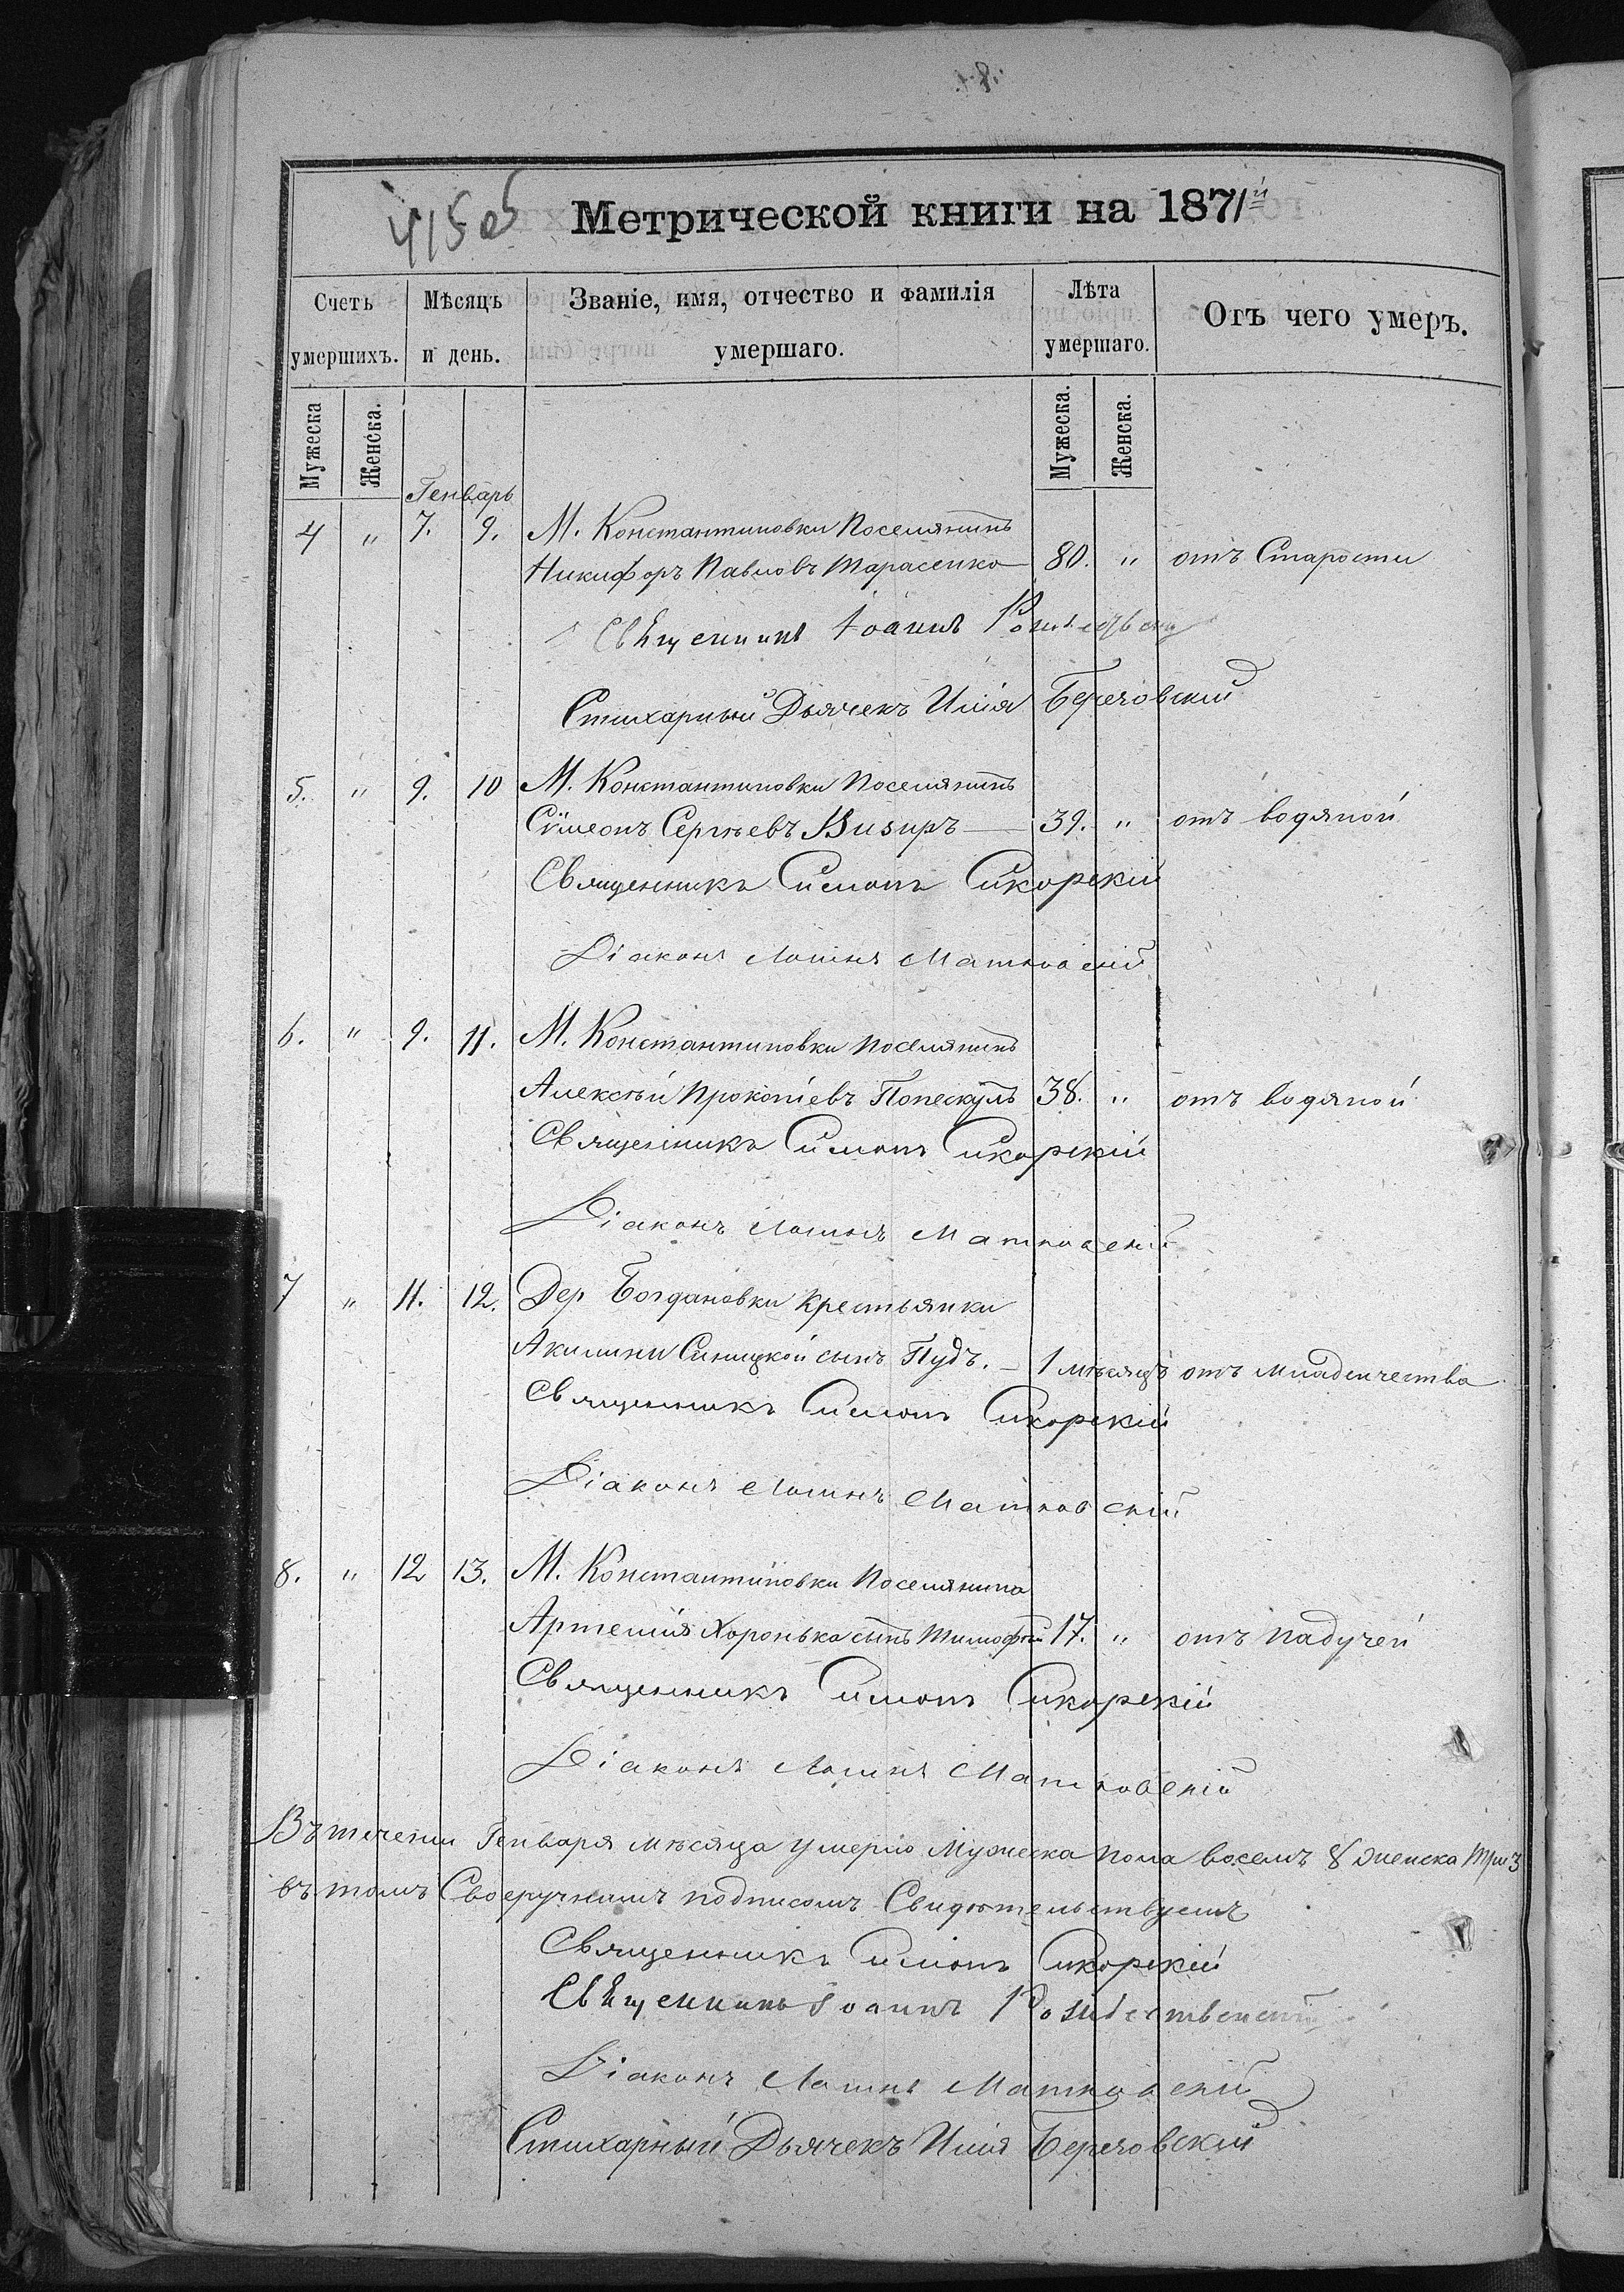 415об
Метрической книги на 1871й
Счетъ умершихъ.
Мѣсяцъ и день.
Званіе, имя, отчество и фамилія умершаго.
Лѣта умершаго.
Отъ чего умеръ.
Мужеска
Женска.
Мужеска.
Женска.
Генварь
4 " 7. 9. М. Константиновки Поселянинъ
Никифоръ Павловъ Тарасенко 80. " отъ Старости
Свѣщенникъ Іоаннъ
Стихарный Дьячекъ Илія Березовскій
5. " 9. 10 М. Константиновки Поселянинъ
Сѵмеонъ Сергѣевъ Визиръ 39. " отъ водяной
Священникъ Симонъ Сикорскій
Діаконъ Логинъ Матковскій
6. " 9. 11. М. Константиновки поселянинъ
Алексѣй Прокопіевъ Попескулъ 38. " отъ водяной
Священникъ Симонъ Сикорскій
Діаконъ Логинъ Матковскій
7 " 11. 12. Дер Богдановки крестьянки
Акилины Синицкой сынъ Пудъ. 1 мѣсяцъ отъ младенчества
Священникъ Симонъ Сикорскій
Діаконъ Логинъ Матковскій
8. " 12 13. М. Константиновки Поселянина
Артемія Хоронька сынъ Тимофей 17. " отъ падучей
Священникъ Симонъ Сикорскій
Діаконъ Логинъ Матковскій
Въ теченіи Генваря мѣсяца умерло Мужеска пола восемъ 8 женска три 3
въ томъ Своеручнымъ подписомъ Свидѣтельствуемъ
Священникъ Симонъ Сикорскій
Свѣщенникъ Іоаннъ Рождественскій
Діаконъ Логинъ Матковскій
Стихарный Дьячекъ Илія Березовскій